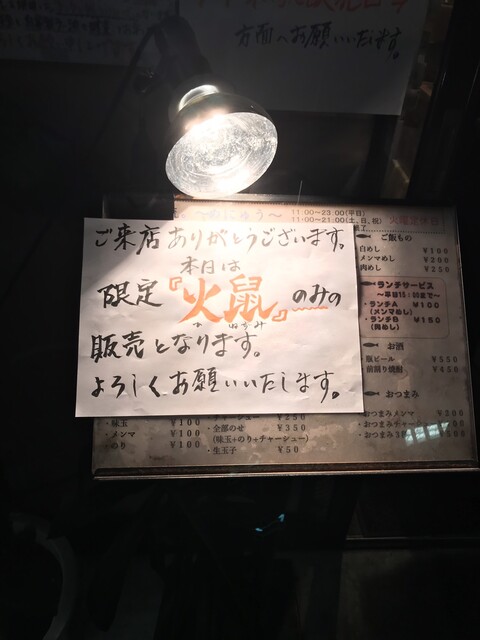 方面へお願いいたします。
11:00~23:00(平日)
11:00~21:00(土、日、祝)
火曜定休日
ご来店ありがとうございます。
本日は
限定『火鼠』のみの
ひ ねずみ
販売となります。
よろしくお願いいたします。
ご飯もの
白めし ¥100
メンマめし ¥200
肉めし ¥250
ランチサービス
・ランチA ¥100
(メンマめし)
・ランチB ¥150
(肉めし)
お酒
瓶ビール ¥550
前割り焼酎 ¥450
おつまみ
・おつまみメンマ ¥300
・おつまみチャーシュー
・味玉 ¥100
・メンマ ¥100
・のり ¥100
チャーシュー ¥250
・全部のせ ¥350
(味玉+のり+チャーシュー)
・生玉子 ¥50